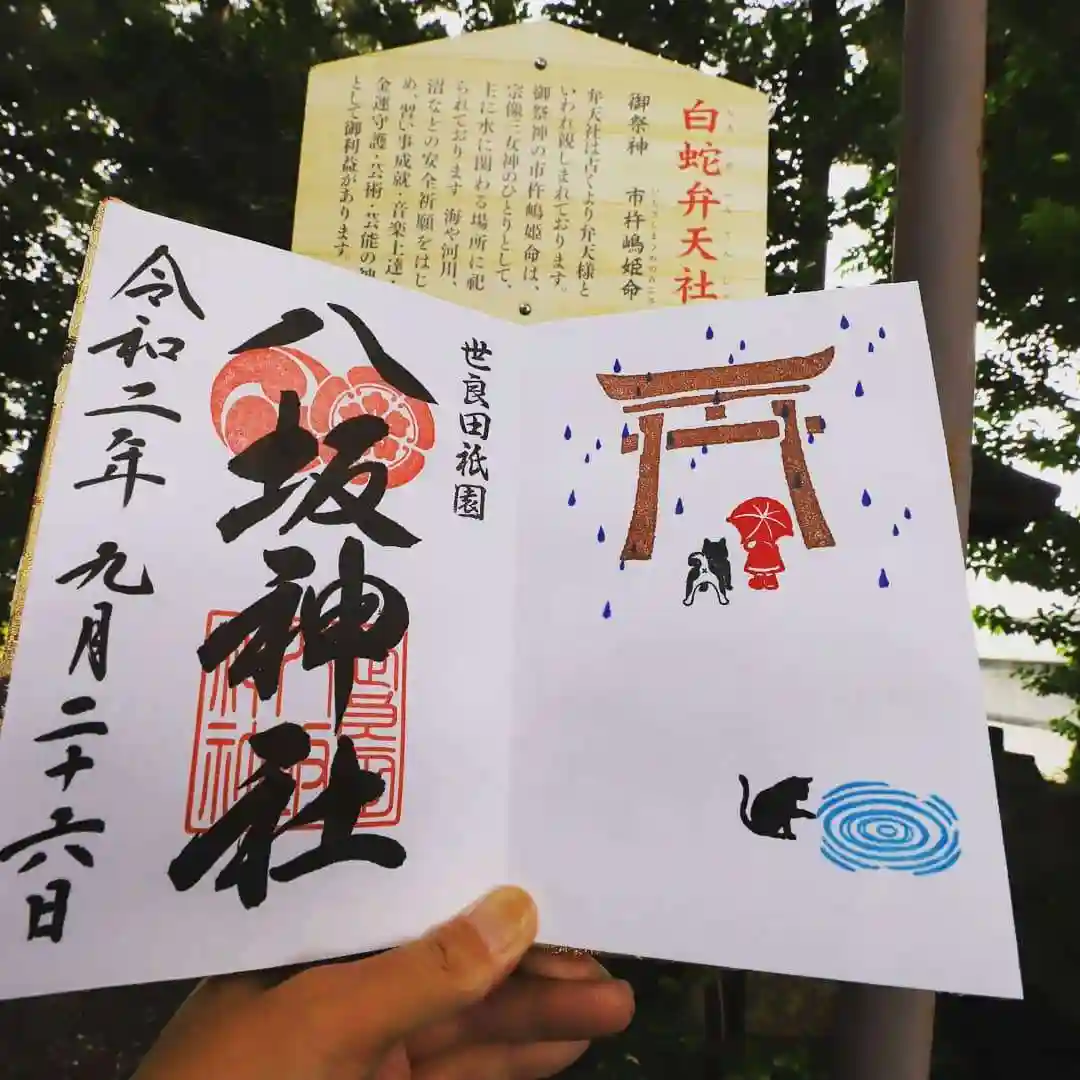 白蛇弁天社
御祭神 市杵嶋姫命
弁天社は古くより弁天様と
いわれ親しまれております。
御祭神の市杵嶋姫命は、
宗像三女神のひとりとして、
主に水に関わる場所に祀
られております 海や河川、
沼などの安全祈願をはじ
め、習い事成就・音楽上達・
金運守護・芸術・芸能の神
として御利益があります
世良田祇園
八坂神社
令和二年 九月二十六日